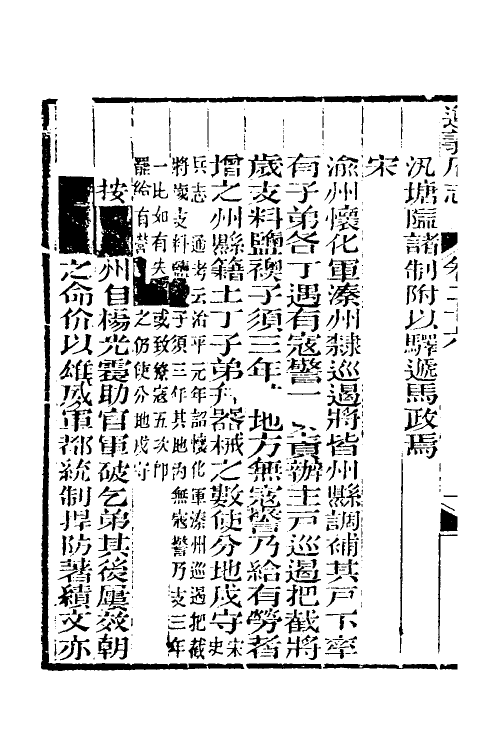 遵義府志 卷二十六
汛塘隘諸制附以驛遞馬政焉
宋
渝州懷化軍溱州隸巡遏將皆州縣調補其戶下率
有子弟各丁遇有寇警一 責辦主戶巡遏把截將
歲支料鹽襖子須三年地方無寇警乃給有勞者
增之州縣籍土丁子弟并器械之數使分地戍守宋史
兵志 通考云治平元年詔懷化軍溱州巡遏把截
將歲支料鹽 子須三年其地內無寇警乃支三年
一比如有失 或致 寇五次即
罷給有警 之仍使分地戍守
按 州自楊光震助官軍破乞弟其後屢效朝
之命价以雄威軍都統制捍防著績文亦